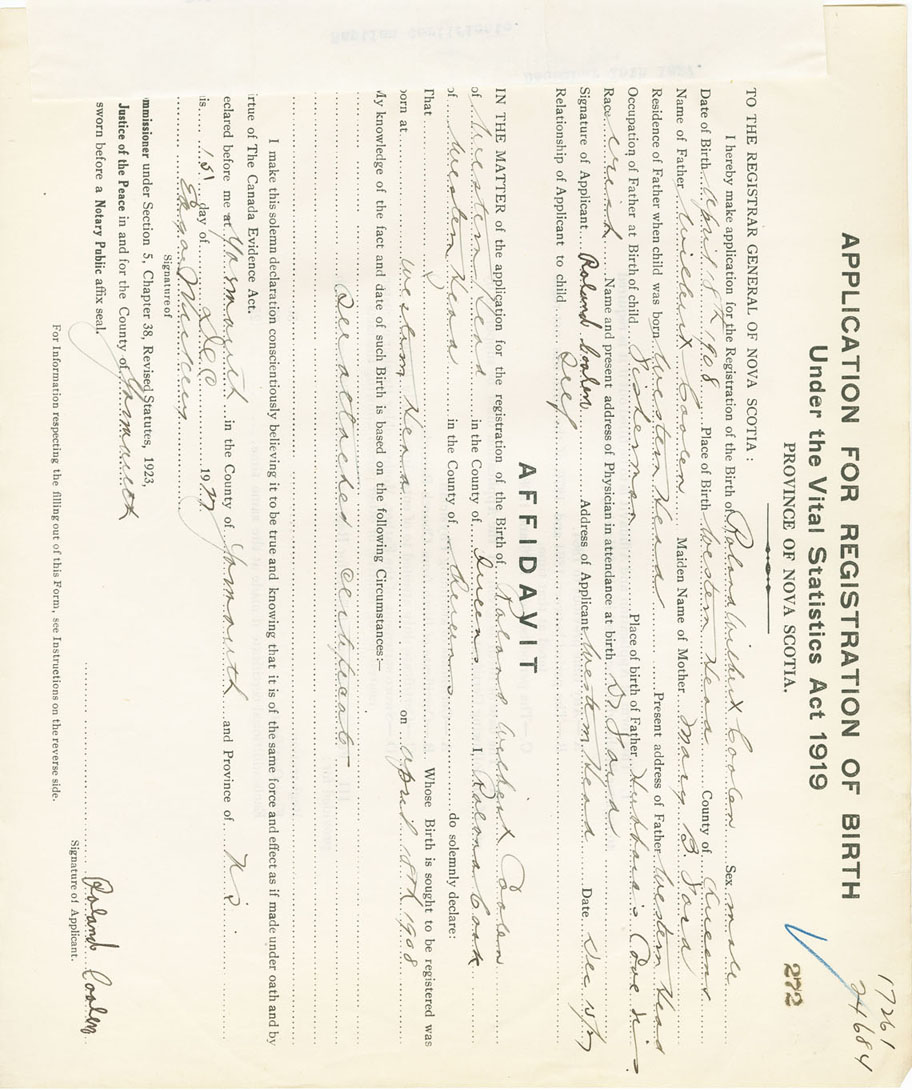 1726 1
24684
272
APPLICATION FOR REGISTRATION OF BIRTH
Under the Vital Statistics Act 1919
PROVINCE OF NOVA SCOTIA.
TO THE REGISTRAR GENERAL OF NOVA SCOTIA:
I hereby make application for the Registration of the Birth of Roland Wilbert Coolen Sex male
Date of Birth April 8th 1908 Place of Birth Western Head County of Queens
Name of Father Wilbert Coolen Maiden Name of Mother Mary B.
Residence of Father when child was born Western Head Present address of Father Western Head
Occupation of Father at Birth of child Fisherman Place of birth of Father Hubbard's Cove N.S.
Race Name and present address of Physician in attendance at birth Dr
Signature of Applicant Roland Coolen Address of Applicant Western Head Date Dec
Relationship of Applicant to child Self
AFFIDAVIT
IN THE MATTER of the application for the registration of the Birth of Roland Wilbert Coolen
of Western Head in the County of Queens I, Roland
of Western Head in the County of Queens do solemnly declare:
That Whose Birth is sought to be registered was
born at Western Head on April 8th 1908
My knowledge of the fact and date of such Birth is based on the following Circumstances:—
See attached certificate
I make this solemn declaration conscientiously believing it to be true and knowing that it is of the same force and effect as if made under oath and by
irtue of The Canada Evidence Act.
eclared before me at Yarmouth in the County of Yarmouth and Province of N S
is 1st day of Dec 19
Signature of
mmissioner under Section 5, Chapter 38, Revised Statutes, 1923,
Justice of the Peace in and for the County of Yarmouth
sworn before a Notary Public affix seal.
Roland Coolen
Signature of Applicant.
For Information respecting the filling out of this Form, see Instructions on the reverse side.